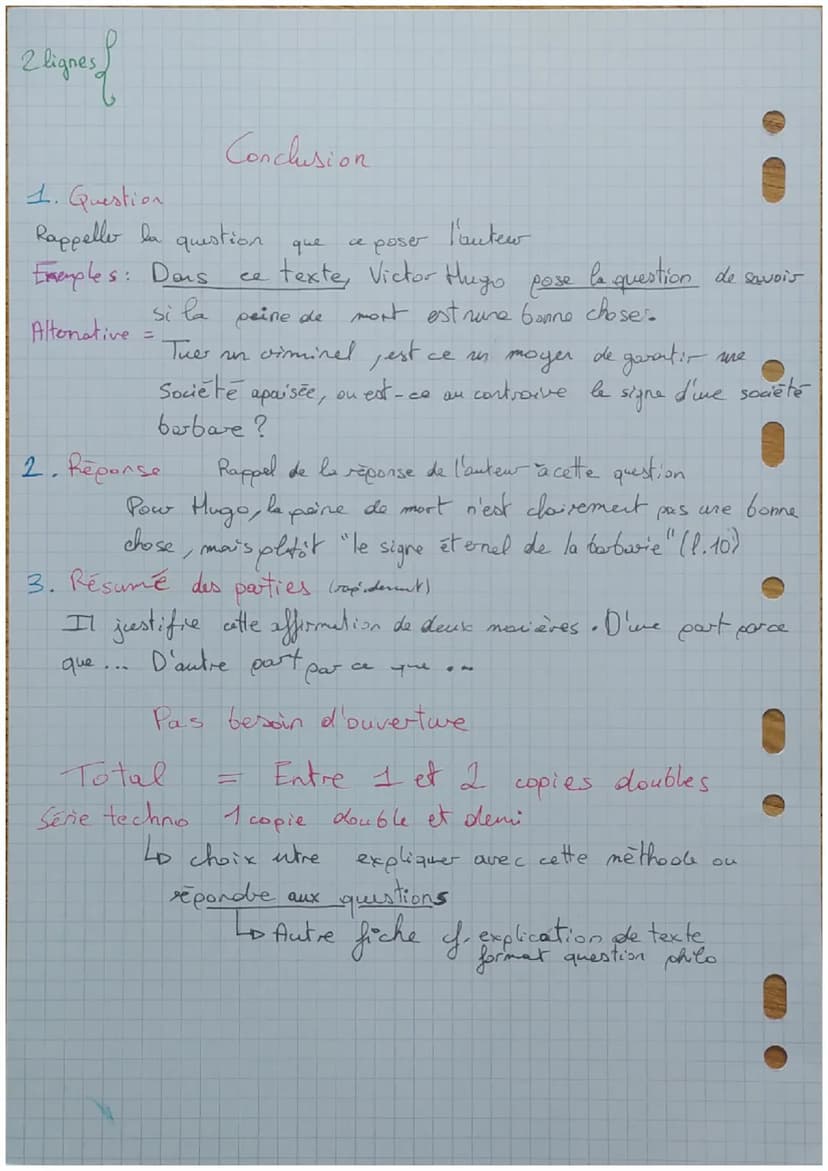 2 lignes
Conclusion
1. Question
Rappeller la question que ce poser l'auteur
Exemples : Dans ce texte, Victor Hugo pose la question de savoir
si la peine de mort est une bonne chose.
Alternative =
Tuer un criminel, est ce un moyen de garantir une
Société apaisée, ou est-ce au contraire le signe d'une société
barbare ?
2. Réponse Rappel de la réponse de l'auteur à cette question
Pour Hugo, la peine de mort n'est clairement pas une bonne
chose, mais plutôt "le signe éternel de la barbarie" (l.10)
3. Résumé des parties (rapidement)
Il justifie cette affirmation de deux manières. D'une part parce
que ... D'autre part par ce que ...
Pas besoin d'ouverture
Total = Entre 1 et 2 copies doubles
Série techno 1 copie double et demi
↳ choix entre expliquer avec cette méthode ou
répondre aux questions
↳ Autre fiche cf. explication de texte
format question philo